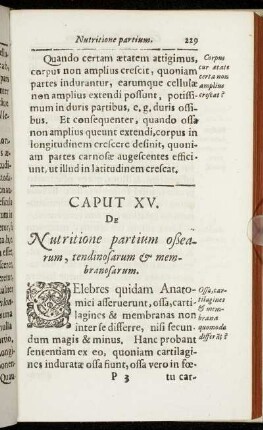 Nutritione partium. 229
Quando certam ætatem attigimus,
corpus non amplius crescit, quoniam
partes indurantur, earumque cellulæ
non amplius extendi possunt, potissi-
mum in duris partibus, e, g, duris ossi-
bus. Et consequenter, quando ossa
non amplius queunt extendi, corpus in
longitudinem crescere desinit, quoni-
am partes carnosæ augescentes effici-
unt, ut illud in latitudinem crescat.
Corpus
cur ætate
certa non
amplius
crescat?
CAPUT XV.
DE
Nutritione partium ossea-
rum, tendinosarum & mem-
branosarum.
CElebres quidam Anato-
mici asseruerunt, ossa, carti-
lagines & membranas non
inter se differre, nisi secun-
dum magis & minus. Hanc probant
sententiam ex eo, quoniam cartilagi-
nes induratæ ossa fiunt, ossa vero in fœ-
Ossa, car-
tilagines
& mem-
brana
quomodo
differāt?
P 3 tu car-